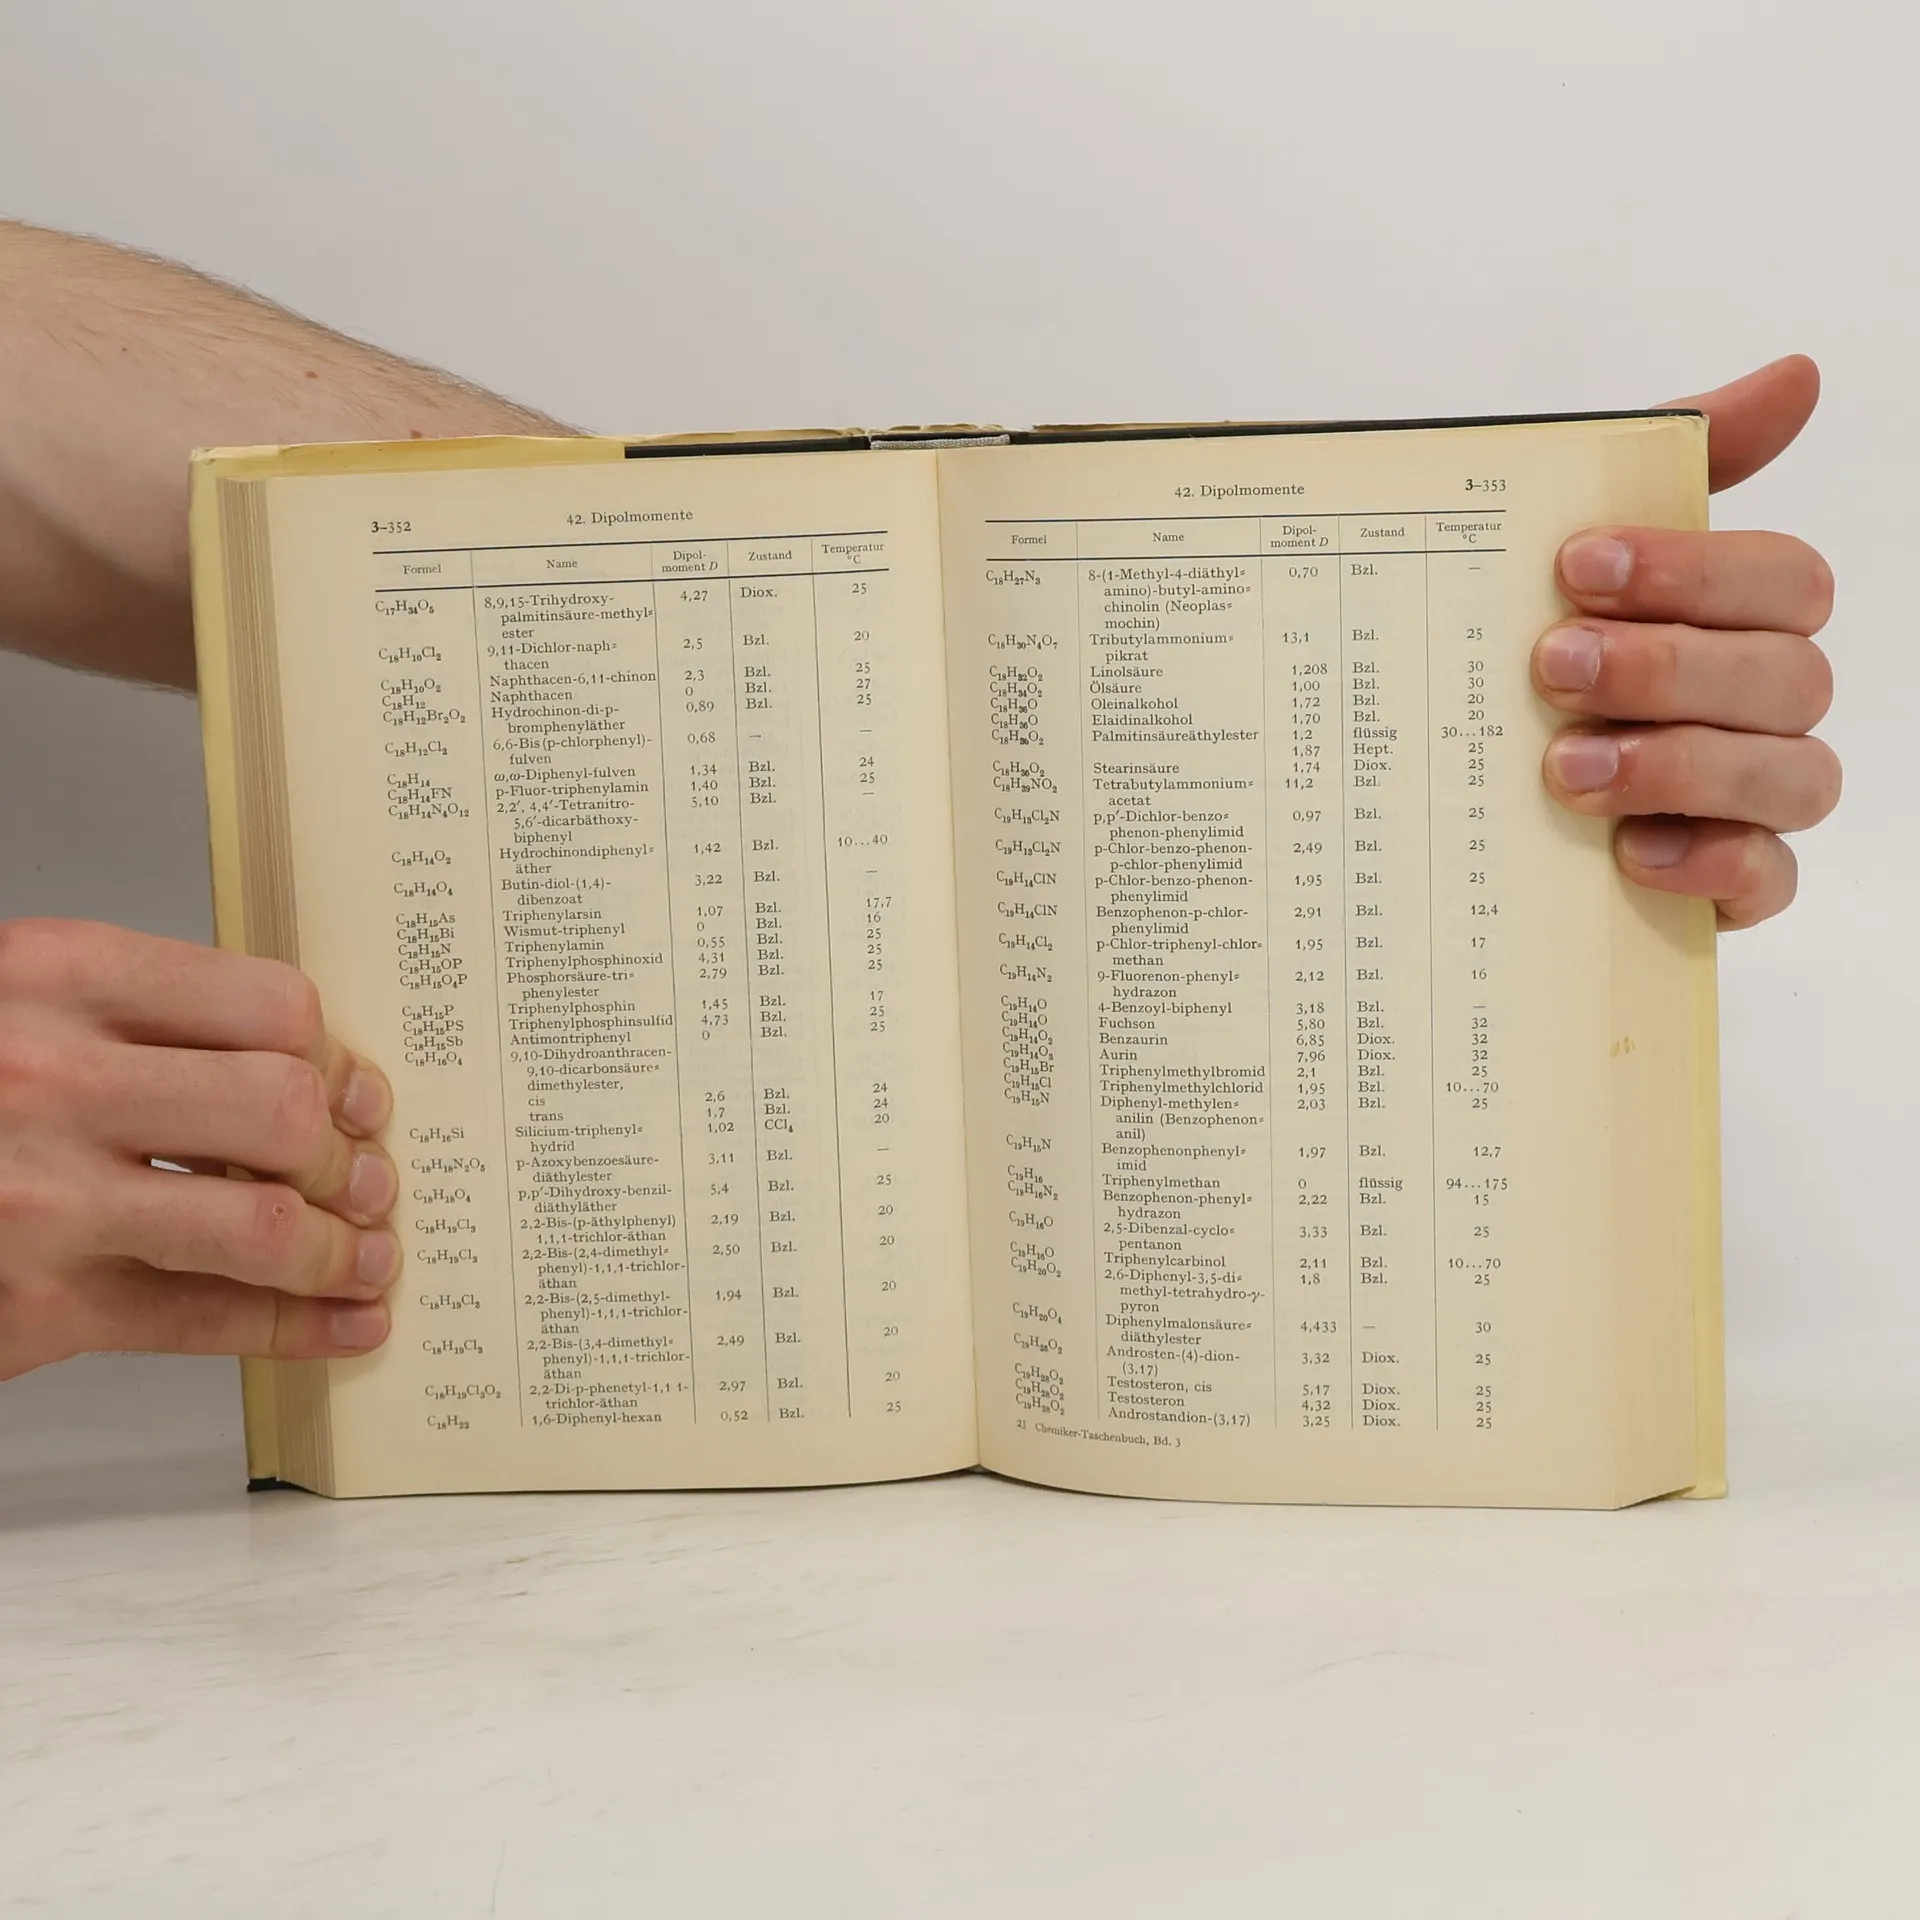 3–352
42. Dipolmomente
Formel Name Dipol-moment D Zustand Temperatur °C
C₁₇H₃₄O₅ 8,9,15-Trihydroxy- 4,27 Diox. 25
palmitinsäure-methyl⸗
ester
C₁₈H₁₀Cl₂ 9,11-Dichlor-naph⸗ 2,5 Bzl. 20
thacen
C₁₈H₁₀O₂ Naphthacen-6,11-chinon 2,3 Bzl. 25
C₁₈H₁₂ Naphthacen 0 Bzl. 27
C₁₈H₁₂Br₂O₂ Hydrochinon-di-p- 0,89 Bzl. 25
bromphenyläther
C₁₈H₁₂Cl₂ 6,6-Bis(p-chlorphenyl)- 0,68 — —
fulven
C₁₈H₁₄ ω,ω-Diphenyl-fulven 1,34 Bzl. 24
C₁₈H₁₄FN p-Fluor-triphenylamin 1,40 Bzl. 25
C₁₈H₁₄N₄O₁₂ 2,2′, 4,4′-Tetranitro- 5,10 Bzl. —
5,6′-dicarbäthoxy-
biphenyl
C₁₈H₁₄O₂ Hydrochinondiphenyl⸗ 1,42 Bzl. 10...40
äther
C₁₈H₁₄O₄ Butin-diol-(1,4)- 3,22 Bzl. —
dibenzoat
C₁₈H₁₅As Triphenylarsin 1,07 Bzl. 17,7
C₁₈H₁₅Bi Wismut-triphenyl 0 Bzl. 16
C₁₈H₁₅N Triphenylamin 0,55 Bzl. 25
C₁₈H₁₅OP Triphenylphosphinoxid 4,31 Bzl. 25
C₁₈H₁₅O₄P Phosphorsäure-tri⸗ 2,79 Bzl. 25
phenylester
C₁₈H₁₅P Triphenylphosphin 1,45 Bzl. 17
C₁₈H₁₅PS Triphenylphosphinsulfid 4,73 Bzl. 25
C₁₈H₁₅Sb Antimontriphenyl 0 Bzl. 25
C₁₈H₁₆O₄ 9,10-Dihydroanthracen-
9,10-dicarbonsäure⸗
dimethylester,
cis 2,6 Bzl. 24
trans 1,7 Bzl. 24
C₁₈H₁₆Si Silicium-triphenyl⸗ 1,02 CCl₄ 20
hydrid
C₁₈H₁₈N₂O₅ p-Azoxybenzoesäure- 3,11 Bzl. —
diäthylester
C₁₈H₁₈O₄ p,p′-Dihydroxy-benzil- 5,4 Bzl. 25
diäthyläther
C₁₈H₁₉Cl₃ 2,2-Bis-(p-äthylphenyl) 2,19 Bzl. 20
1,1,1-trichlor-äthan
C₁₈H₁₉Cl₃ 2,2-Bis-(2,4-dimethyl⸗ 2,50 Bzl. 20
phenyl)-1,1,1-trichlor-
äthan
C₁₈H₁₉Cl₃ 2,2-Bis-(2,5-dimethyl- 1,94 Bzl. 20
phenyl)-1,1,1-trichlor-
äthan
C₁₈H₁₉Cl₃ 2,2-Bis-(3,4-dimethyl⸗ 2,49 Bzl. 20
phenyl)-1,1,1-trichlor-
äthan
C₁₈H₁₉Cl₃O₂ 2,2-Di-p-phenetyl-1,1 1- 2,97 Bzl. 20
trichlor-äthan
C₁₈H₂₂ 1,6-Diphenyl-hexan 0,52 Bzl. 25
42. Dipolmomente
3–353
Formel Name Dipol-moment D Zustand Temperatur °C
C₁₈H₂₇N₃ 8-(1-Methyl-4-diäthyl⸗ 0,70 Bzl. —
amino)-butyl-amino⸗
chinolin (Neoplas⸗
mochin)
C₁₈H₃₀N₄O₇ Tributylammonium⸗ 13,1 Bzl. 25
pikrat
C₁₈H₃₂O₂ Linolsäure 1,208 Bzl. 30
C₁₈H₃₄O₂ Ölsäure 1,00 Bzl. 30
C₁₈H₃₆O Oleinalkohol 1,72 Bzl. 20
C₁₈H₃₆O Elaidinalkohol 1,70 Bzl. 20
C₁₈H₃₆O₂ Palmitinsäureäthylester 1,2 flüssig 30...182
1,87 Hept. 25
C₁₈H₃₆O₂ Stearinsäure 1,74 Diox. 25
C₁₈H₃₉NO₂ Tetrabutylammonium⸗ 11,2 Bzl. 25
acetat
C₁₉H₁₃Cl₂N p,p′-Dichlor-benzo⸗ 0,97 Bzl. 25
phenon-phenylimid
C₁₉H₁₃Cl₂N p-Chlor-benzo-phenon- 2,49 Bzl. 25
p-chlor-phenylimid
C₁₉H₁₄ClN p-Chlor-benzo-phenon- 1,95 Bzl. 25
phenylimid
C₁₉H₁₄ClN Benzophenon-p-chlor- 2,91 Bzl. 12,4
phenylimid
C₁₉H₁₄Cl₂ p-Chlor-triphenyl-chlor⸗ 1,95 Bzl. 17
methan
C₁₉H₁₄N₂ 9-Fluorenon-phenyl⸗ 2,12 Bzl. 16
hydrazon
C₁₉H₁₄O 4-Benzoyl-biphenyl 3,18 Bzl. —
C₁₉H₁₄O Fuchson 5,80 Bzl. 32
C₁₉H₁₄O₂ Benzaurin 6,85 Diox. 32
C₁₉H₁₄O₃ Aurin 7,96 Diox. 32
C₁₉H₁₅Br Triphenylmethylbromid 2,1 Bzl. 25
C₁₉H₁₅Cl Triphenylmethylchlorid 1,95 Bzl. 10...70
C₁₉H₁₅N Diphenyl-methylen⸗ 2,03 Bzl. 25
anilin (Benzophenon⸗
anil)
C₁₉H₁₅N Benzophenonphenyl⸗ 1,97 Bzl. 12,7
imid
C₁₉H₁₆ Triphenylmethan 0 flüssig 94...175
C₁₉H₁₆N₂ Benzophenon-phenyl⸗ 2,22 Bzl. 15
hydrazon
C₁₉H₁₆O 2,5-Dibenzal-cyclo⸗ 3,33 Bzl. 25
pentanon
C₁₉H₁₆O Triphenylcarbinol 2,11 Bzl. 10...70
C₁₉H₂₀O₂ 2,6-Diphenyl-3,5-di⸗ 1,8 Bzl. 25
methyl-tetrahydro-γ-
pyron
C₁₉H₂₀O₄ Diphenylmalonsäure⸗ 4,433 — 30
diäthylester
C₁₉H₂₆O₂ Androsten-(4)-dion- 3,32 Diox. 25
(3,17)
C₁₉H₂₈O₂ Testosteron, cis 5,17 Diox. 25
C₁₉H₂₈O₂ Testosteron 4,32 Diox. 25
C₁₉H₂₈O₂ Androstandion-(3,17) 3,25 Diox. 25
23 Chemiker-Taschenbuch, Bd. 3